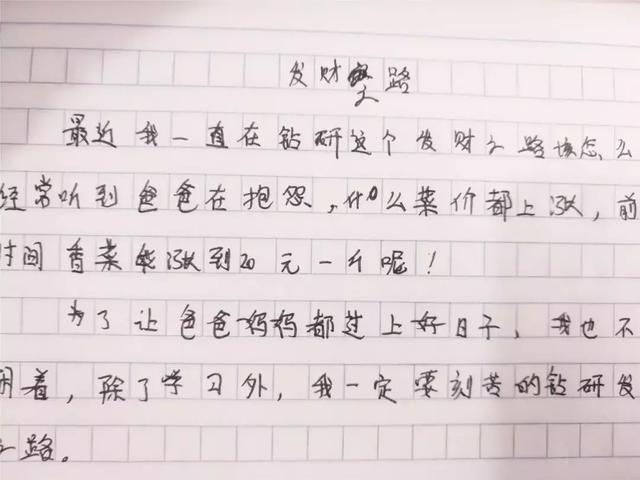 发财之路
最近我一直在钻研这个发财之路该怎么
经常听到爸爸在抱怨，什么菜价都上涨，前
时间香菜能涨到20元一斤呢！
为了让爸爸妈妈都过上好日子，我也不
闲着，除了学习外，我一定要刻苦的钻研发
之路。